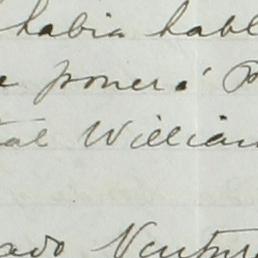 habia habl
poner á
tal William
ado Ventur